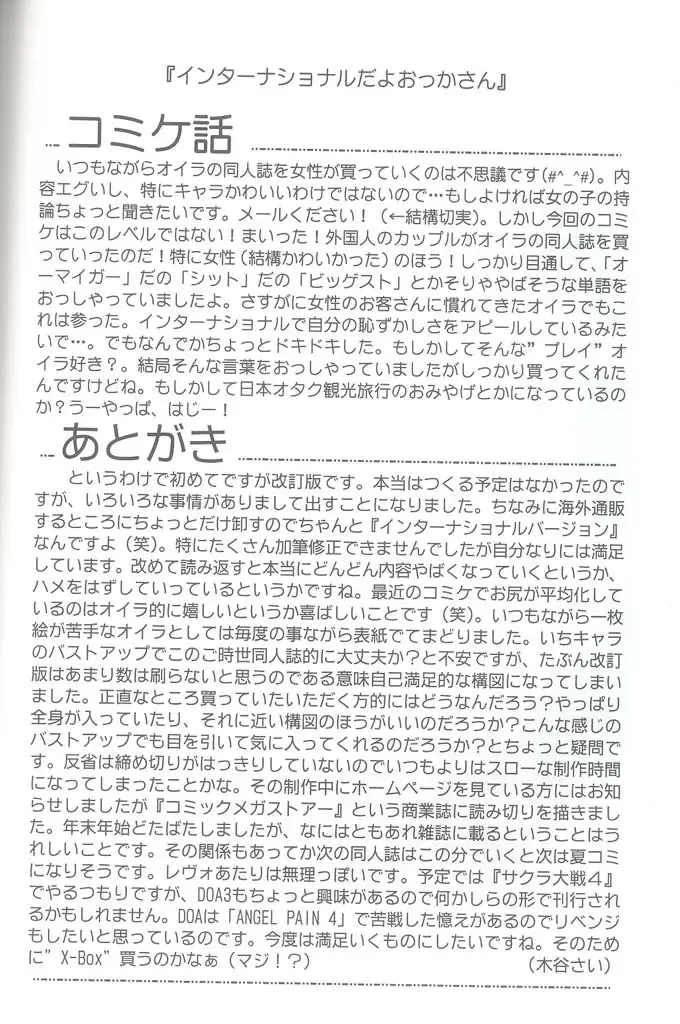 『インターナショナルだよおっかさん』
コミケ話
いつもながらオイラの同人誌を女性が買っていくのは不思議です(#^_^#)。内
容エグいし、特にキャラかわいいわけではないので…もしよければ女の子の持
論ちょっと聞きたいです。メールください！（←結構切実）。しかし今回のコミ
ケはこのレベルではない！まいった！外国人のカップルがオイラの同人誌を買
っていったのだ！特に女性（結構かわいかった）のほう！しっかり目通して、「オ
ーマイガー」だの「シット」だの「ビッゲスト」とかそりゃやばそうな単語を
おっしゃっていましたよ。さすがに女性のお客さんに慣れてきたオイラでもこ
れは参った。インターナショナルで自分の恥ずかしさをアピールしているみた
いで…。でもなんでかちょっとドキドキした。もしかしてそんな”プレイ”オ
イラ好き？。結局そんな言葉をおっしゃっていましたがしっかり買ってくれた
んですけどね。もしかして日本オタク観光旅行のおみやげとかになっているの
か？うーやっぱ、はじー！
あとがき
というわけで初めてですが改訂版です。本当はつくる予定はなかったので
すが、いろいろな事情がありまして出すことになりました。ちなみに海外通販
するところにちょっとだけ卸すのでちゃんと『インターナショナルバージョン』
なんですよ（笑）。特にたくさん加筆修正できませんでしたが自分なりには満足
しています。改めて読み返すと本当にどんどん内容やばくなっていくというか、
ハメをはずしていっているというかですね。最近のコミケでお尻が平均化して
いるのはオイラ的に嬉しいというか喜ばしいことです（笑）。いつもながら一枚
絵が苦手なオイラとしては毎度の事ながら表紙でてまどりました。いちキャラ
のバストアップでこのご時世同人誌的に大丈夫か？と不安ですが、たぶん改訂
版はあまり数は刷らないと思うのである意味自己満足的な構図になってしまい
ました。正直なところ買っていたいただく方的にはどうなんだろう？やっぱり
全身が入っていたり、それに近い構図のほうがいいのだろうか？こんな感じの
バストアップでも目を引いて気に入ってくれるのだろうか？とちょっと疑問で
す。反省は締め切りがはっきりしていないのでいつもよりはスローな制作時間
になってしまったことかな。その制作中にホームページを見ている方にはお知
らせしましたが『コミックメガストアー』という商業誌に読み切りを描きまし
た。年末年始どたばたしましたが、なにはともあれ雑誌に載るということはう
れしいことです。その関係もあってか次の同人誌はこの分でいくと次は夏コミ
になりそうです。レヴォあたりは無理っぽいです。予定では『サクラ大戦４』
でやるつもりですが、DOA3もちょっと興味があるので何かしらの形で刊行され
るかもしれません。DOAは「ANGEL PAIN 4」で苦戦した憶えがあるのでリベンジ
もしたいと思っているのです。今度は満足いくものにしたいですね。そのため
に”X-Box”買うのかなぁ（マジ！？）　（木谷さい）